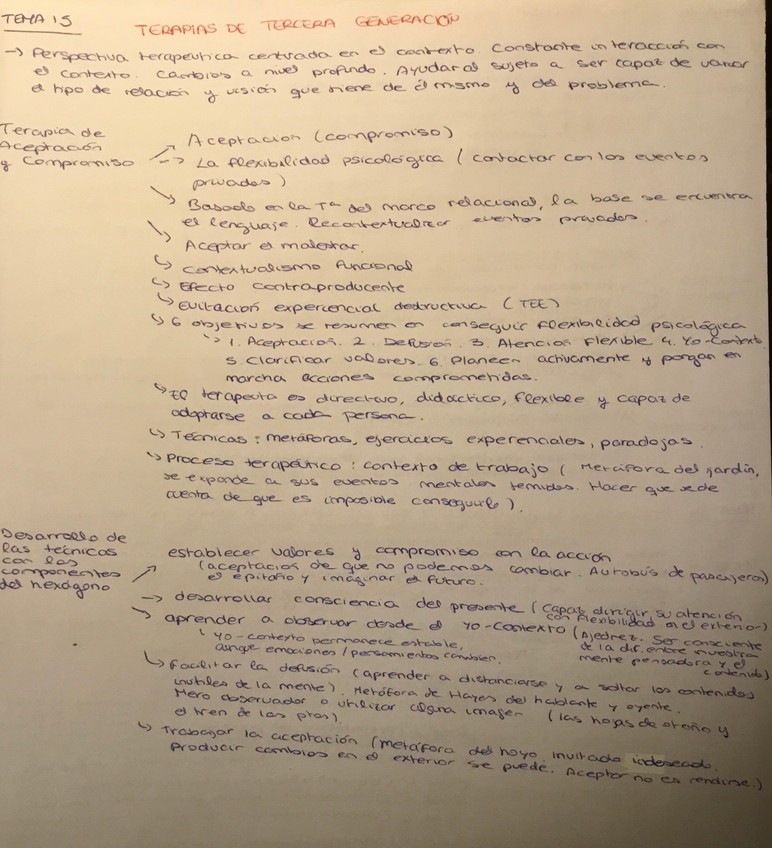 TEMA 15
TERAPIAS DE TERCERA GENERACIÓN
→ Perspectiva terapeutica centrada en el contexto. Constante interacción con
el contexto. Cambios a nivel profundo. Ayudar al sujeto a ser capaz de variar
el tipo de relación y visión que tiene de él mismo y del problema.
Terapia de
Aceptación
y Compromiso
Aceptación (compromiso)
La flexibilidad psicológica (contactar con los eventos
privados)
Basado en la Tª del marco relacional, la base se encuentra
el lenguaje. Recontextualizar eventos privados.
Aceptar el malestar.
Contextualismo funcional
Efecto contraproducente
Evitación experiencial destructiva (TEE)
6 objetivos se resumen en conseguir flexibilidad psicológica
1. Aceptación. 2. Defusión. 3. Atención flexible 4. Yo-Contexto
5. Clarificar valores. 6. Planeen activamente y pongan en
marcha acciones comprometidas.
El terapeuta es directivo, didáctico, flexible y capaz de
adaptarse a cada persona.
Técnicas: metáforas, ejercicios experenciales, paradojas.
Proceso terapéutico: contexto de trabajo (Metáfora del jardín,
se expande a sus eventos mentales temidos. Hacer que se de
cuenta de que es imposible conseguirlo).
Desarrollo de
las técnicas
con los
componentes
del hexágono
establecer valores y compromiso con la acción
(aceptación de que no podemos cambiar. Autobús de pasajeros)
el epitafio y imaginar el futuro.
→ desarrollar consciencia del presente (Capaz dirigir su atención
con flexibilidad en el exterior)
aprender a observar desde el Yo-Contexto (Ajedrez. Ser consciente
de la dif. entre nuestra
mente pensadora y el
contenido)
Yo-contexto permanece estable,
aunque emociones/pensamientos cambien.
Facilitar la defusión (aprender a distanciarse y a soltar los contenidos
inútiles de la mente). Metáfora de Hayes del hablante y oyente.
Mero observador o utilizar alguna imagen (las hojas de otoño y
el tren de las ptos).
Trabajar la aceptación (metáfora del hoyo, invitado indeseado.
Producir cambios en el exterior se puede. Aceptar no es rendirse.)